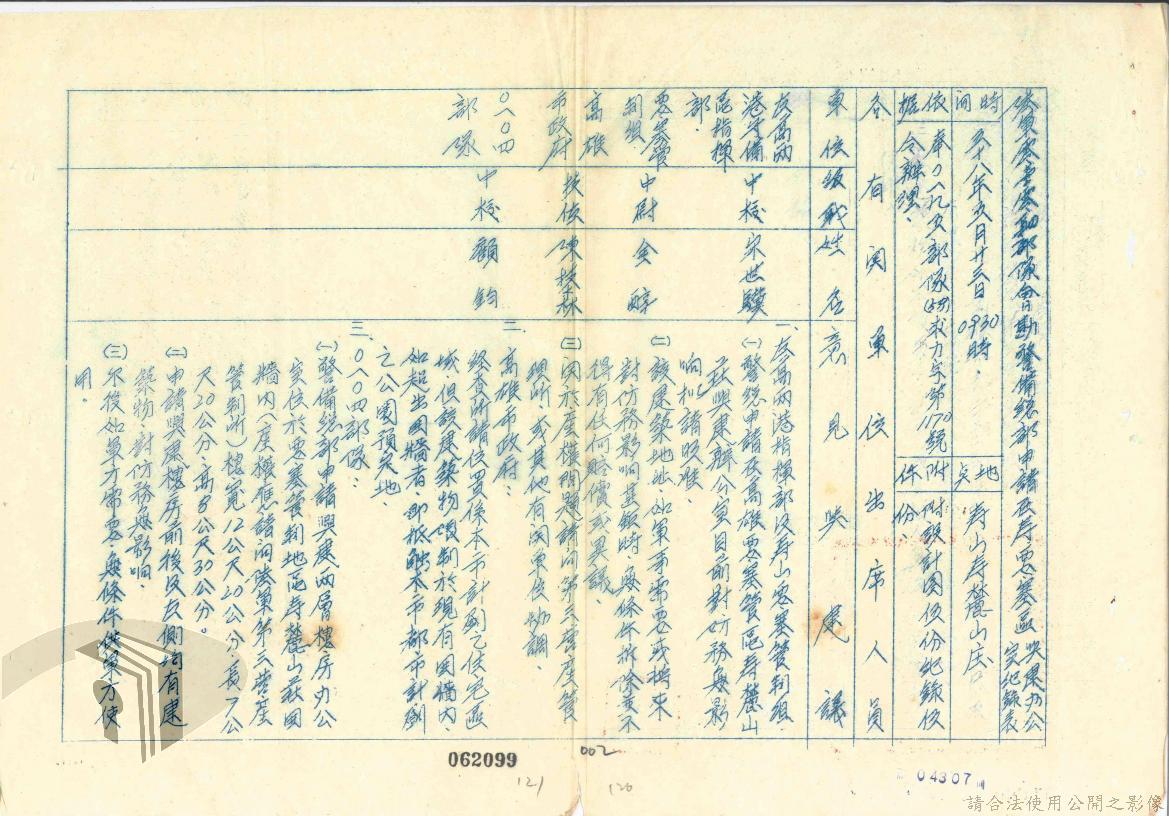 陸軍〇八〇四部隊會勘警備總部申請在壽要塞區興建辦公室紀錄表
時間
五十八年五月廿三日0930時.
地点
壽山壽麓山庄
依据
奉〇一九五部隊(58)求力字第1170號
令辦理.
附件
附設計圖伍份紀錄伍
份
各有関單位出席人員
單位
級職
姓名
意見與建議
左高兩
港守備
區指揮
部.
中校
宋世驥
要塞管
制組
中尉
金醇
高雄
市政府
技佐
陳枝森
〇八〇四
部隊
中校
顧鈞
一、左高兩港指揮部及壽山要塞管制組.
(一)警總申請在高雄要塞管區壽麓山
莊興建辦公室目前對防務無影
响擬請照准.
(二)該建築地址.如軍事需要或將來
對防務影响甚鉅時.無條件拆除並不
得有任何賠償或異議.
(三)関於產權問題.請向第三營產管
理所.或其他有関單位協調.
二、高雄市政府:
經查所請位置係本市計劃之住宅區
域.但該建築物限制於現有圍牆內.
如超出圍牆者.即抵触本市都市計劃
之公園預定地.
三、〇八〇四部隊.
(一)警備總部申請興建兩層樓房办公
室位於要塞管制地區壽麓山莊圍
牆內(產權應請向陸軍第三營產
管制所)樓寬12公尺20公分.長7公
尺20公分.高8公尺30公分。
(二)申請興建樓房前後及左側均有建
築物.對防務無影响.
(三)尔後如軍方需要.無條件供軍方使
用。
062099
002
121
120
04307
請合法使用公開之影像